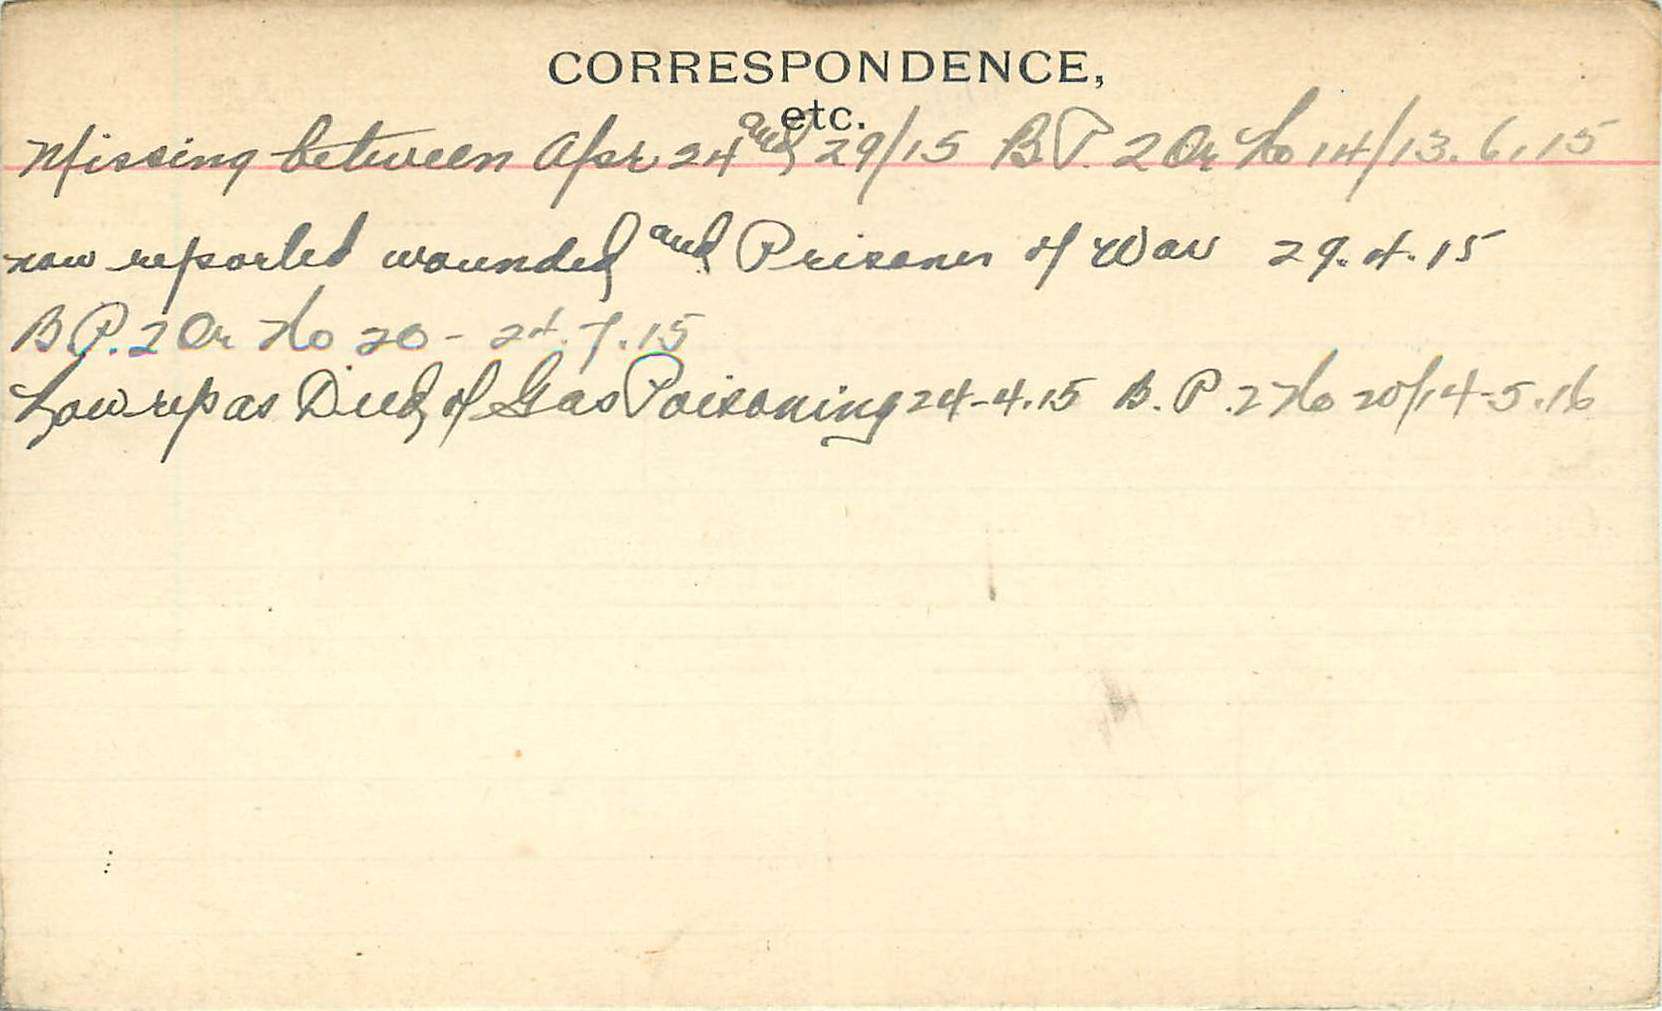 CORRESPONDENCE,
etc.
Missing between Apr 24 and 29/15 B.P. 2 Or No 14/13.6.15
now reported wounded and Prisoner of War 29.4.15
B.P. 2 Or No 20 - 24.7.15
Now rep as Died of Gas Poisoning 24-4.15 B.P. 2 No 20/14-5.16